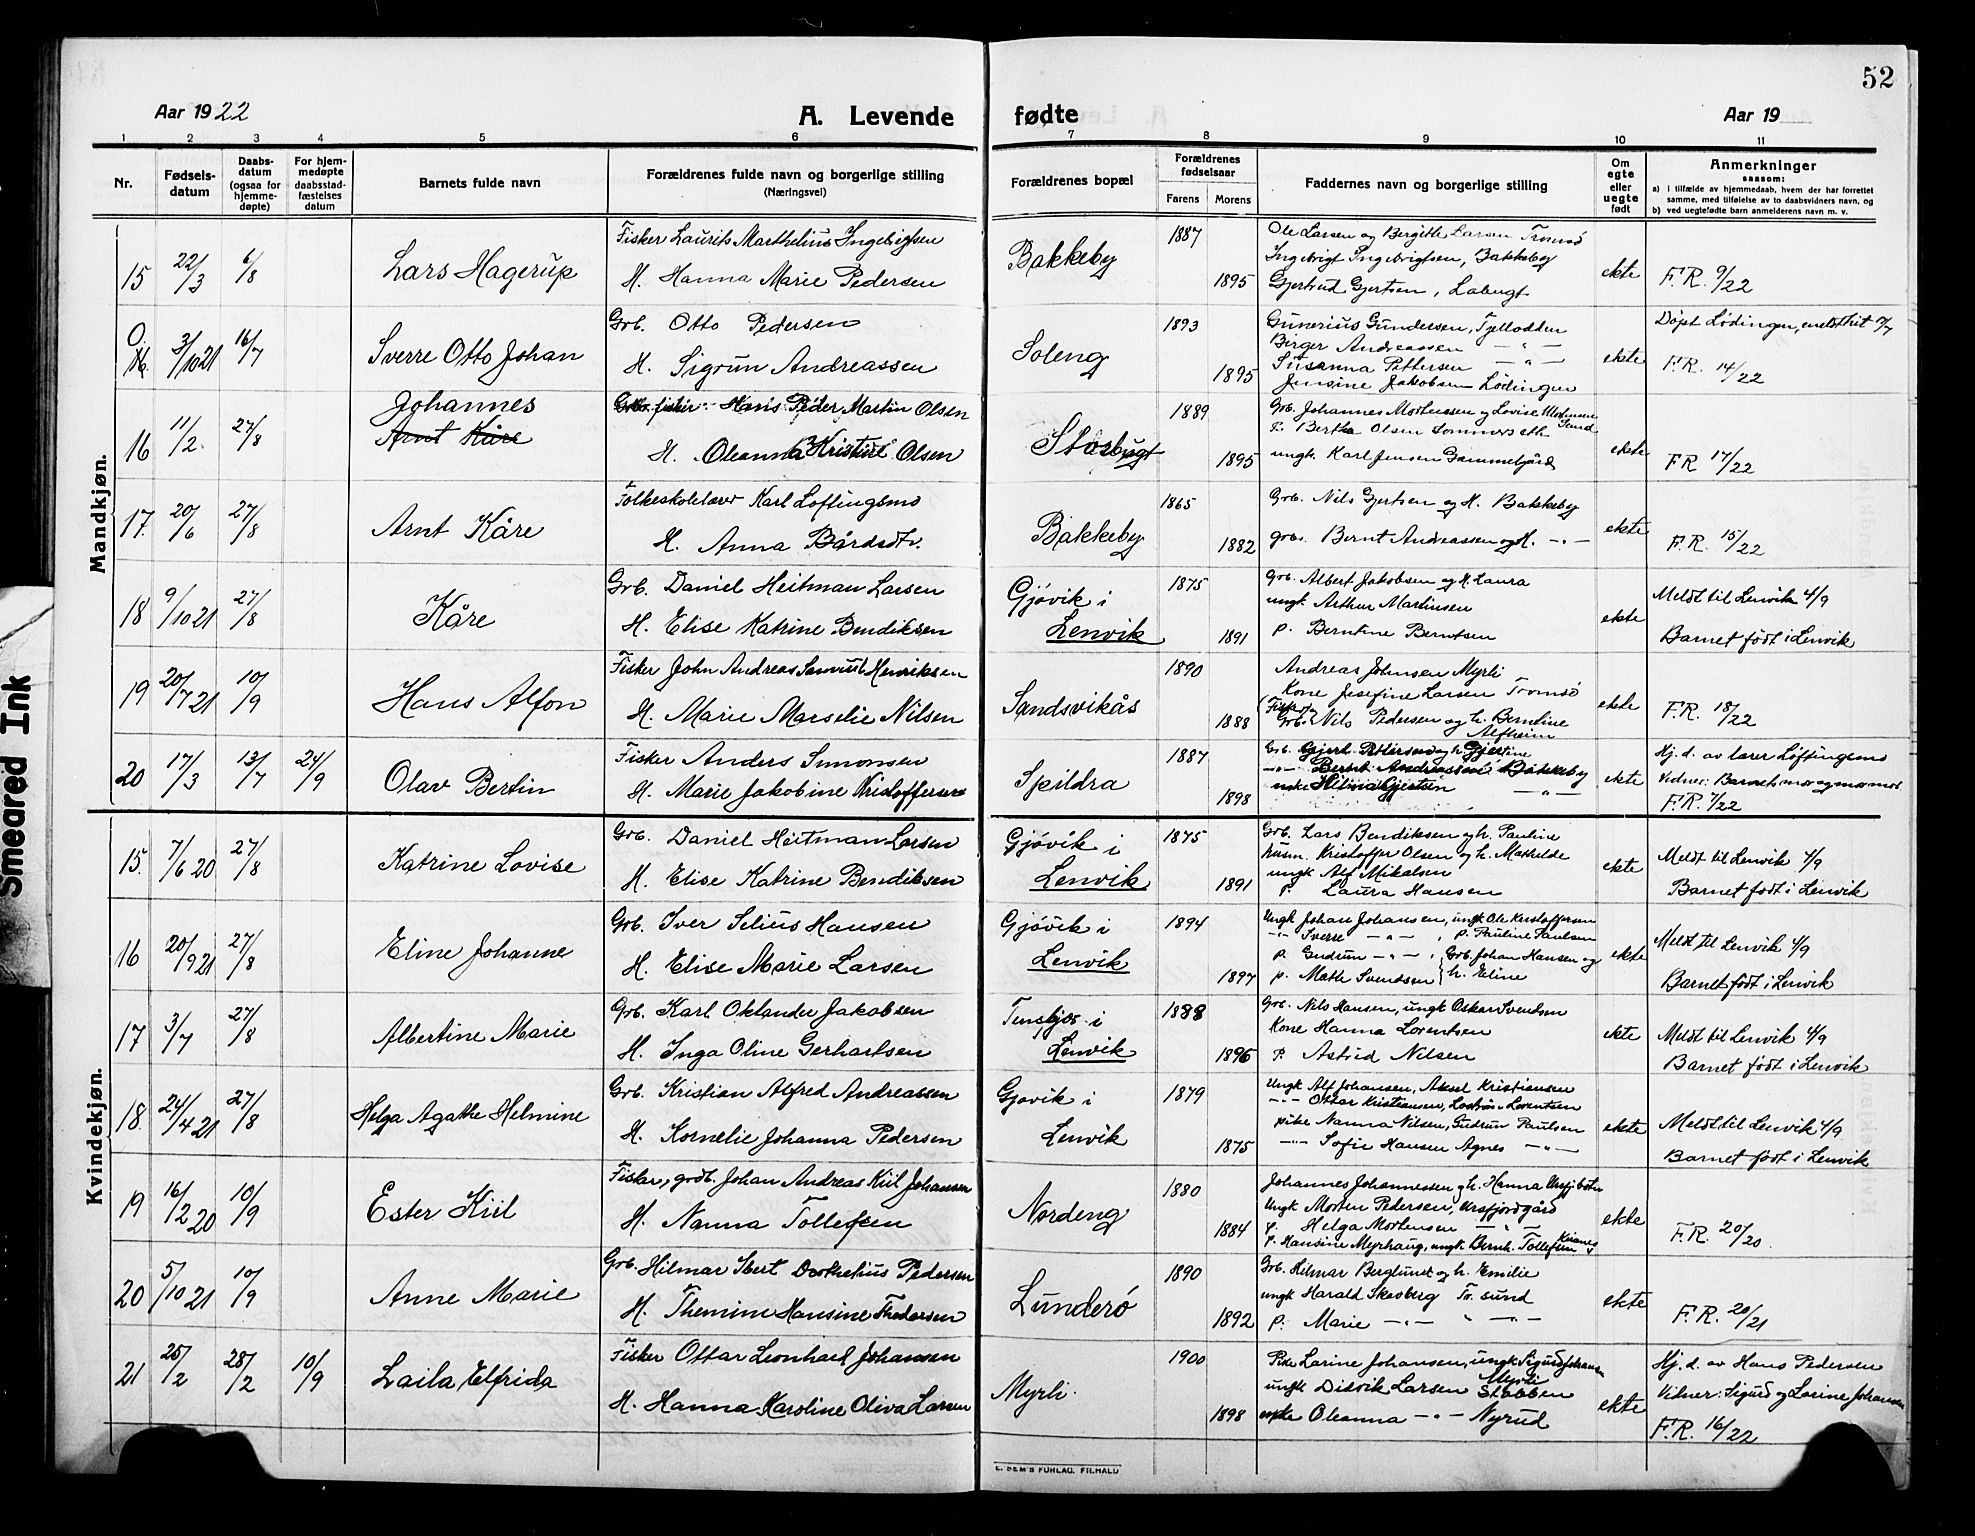 52
Aar 1922 A. Levende fødte Aar 19
1 2 3 4 5 6 7 8 9 10 11
Nr. Fødselsdatum Daabsdatum (ogsaa for hjemmedøpte) For hjemmedøpte daabsstadfæstelses datum Barnets fulde navn Forældrenes fulde navn og borgerlige stilling (Næringsvei) Forældrenes bopæl Forældrenes fødselsaar Farens Morens Faddernes navn og borgerlige stilling Om egte eller uegte født Anmerkninger saasom:
a) i tilfælde av hjemmedaab, hvem der har forrettet samme, med tilføielse av to daabsvidners navn, og
b) ved uegtefødte barn anmelderens navn m. v.
Mandkjøn.
15 22/3 6/8 Lars Hagerup Fisker Laurits Marthelius Ingebrigtsen Bakkeby 1887 Ole Larsen og Bergitte Larsen Tromsø
H. Hanna Marie Pedersen 1895 Ingebrigt Ingebrigtsen, Bakkeby ekte F.R. 9/22
Gjertrud Gjertsen, Labugt
O. 16 3/10 21 16/7 Sverre Otto Johan Grb. Otto Pedersen Soleng 1893 Gunerius Gundersen, Fjellodden Døpt Lødingen,
Birger Andreassen -"-
H. Sigrun Andreassen 1895 Susanna Pettersen -"- ekte F.R. 14/22
Jensine Jakobsen Lødingen
16 11/2 27/8 Johannes Arnt Kåre fisker Hans Peder Martin Olsen Storbugt 1889 Grb. Johannes Mortensen og Lovise Mortensen
P. Bertha Olsen Sommerseth
H. Oleanna Kristine Olsen 1895 ungk. Karl Jensen Gammelgård ekte FR 17/22
17. 20/6 27/8 Arnt Kåre Folkeskolelærer Karl Løftingsmo Bakkeby 1865 Grb. Nils Gjertsen og H. Bakkeby
H. Anna Bårdsdtr. 1882 grb. Bernt Andreassen og H. -"- ekte F.R. 15/22
18 9/10 21 27/8 Kåre Grb. Daniel Heitman Larsen Gjøvik i Lenvik 1875 Grb. Albert Jakobsen og H. Laura Meldt til Lenvik 4/9
ungk Arthur Martinsen
H. Elise Katrine Bendiksen 1891 P. Berntine Berntsen ekte Barnet født i Lenvik
19 20/7 21 10/9 Hans Alfon Fisker John Andreas Samuel Henriksen Sandsvikås 1890 Andreas Johnsen Myrli
Kone Josefine Larsen Tromsø
H. Marie Marselie Nilsen 1888 (Fisker og Grb.) Nils Pedersen og h. Berntine Alfheim ekte F.R. 18/22
20 17/3 13/7 24/9 Olav Bertin Fisker Anders Simonsen Spildra 1887 Grb. Gjert Pettersen og h. Gjertine Hj.d. av lærer Løftingsmo
-"- Bernt Andreassen Bakkeby ekte Vidner: Barnets mor og mormor
H. Marie Jakobine Kristoffersen 1898 Helmine Gjertsen -"- F.R. 7/22
Kvindekjøn.
15. 7/6 20 27/8 Katrine Lovise Grb. Daniel Heitman Larsen Gjøvik i Lenvik 1875 Grb. Lars Bendiksen og h. Pauline
husm. Kristoffer Olsen og h. Mathilde Meldt til Lenvik 4/9
H. Elise Katrine Bendiksen 1891 ungk Alf Mikalsen ekte Barnet født i Lenvik
p. Laura Hansen
16 20/9 21 27/8 Eline Johanne Grb. Iver Selius Hansen Gjøvik i Lenvik 1894 Ungk Johan Johansen, ungk Ole Kristoffersen
-"- Sverre -"-, p. Pauline Paulsen Meldt til Lenvik 4/9
H. Elise Marie Larsen 1897 p. Gudrun -"-, Grb. Johan Hansen og h. Eline ekte Barnet født i Lenvik
p. Mathe Svendsen
17 3/7 27/8 Albertine Marie Grb. Karl Oktander Jakobsen Tenskjær i Lenvik 1888 Grb. Nils Hansen, ungk Oskar Svendsen
Kone Hanna Lorentsen Meldt til Lenvik 4/9
H. Inga Oline Gerhartsen 1896 P. Astrid Nilsen ekte Barnet født i Lenvik
18. 24/4 21 27/8 Helga Agathe Helmine Grb. Kristian Alfred Andreassen Gjøvik i Lenvik 1879 Ungk Alf Johansen, Aksel Kristiansen
-"- Ottar Kristiansen, Lorentsen
H. Kornelie Johanna Pedersen 1875 pike Nanna Nilsen, Gudrun Paulsen ekte Meldt til Lenvik 4/9
-"- Sofie Hansen Agnes -"- Barnet født i Lenvik
19 16/2 20 10/9 Ester Kiil Fisker, grdb. Johan Andreas Kiil Johansen Nordeng 1880 Johannes Johannessen og h. Hanna
Ungk Morten Pedersen, Ersfjordgård
H. Nanna Tollefsen 1884 p. Helga Mortensen -"- ekte F.R. 20/20
P. Hansine Myrhaug, ungk Bernh. Tollefsen
20 5/10 21 10/9 Anne Marie Grb. Hilmar Ibert Dorthelius Pedersen Lunderø 1890 Grb. Hilmar Berglund og h. Emilie
ungk Harald Skogberg Tr. sund
H. Themine Hansine Thodersen 1892 p. Marie -"- " -"- ekte F.R. 20/21
21 25/2 28/2 10/9 Laila Elfrida Fisker Ottar Leonhard Johansen Myrli. 1900 Pike Larine Johansen, ungk Sigurd Johansen Myrli Hj.d. av Hans Pedersen
ungk Didrik Larsen Stabben Vitner: Sigurd og Larine Johansen
H. Hanna Karoline Oliva Larsen 1898 enke Oleanna -"- Nyrud ekte F.R. 16/22
E. SEM'S FORLAG, FR.HALD
Smeared Ink